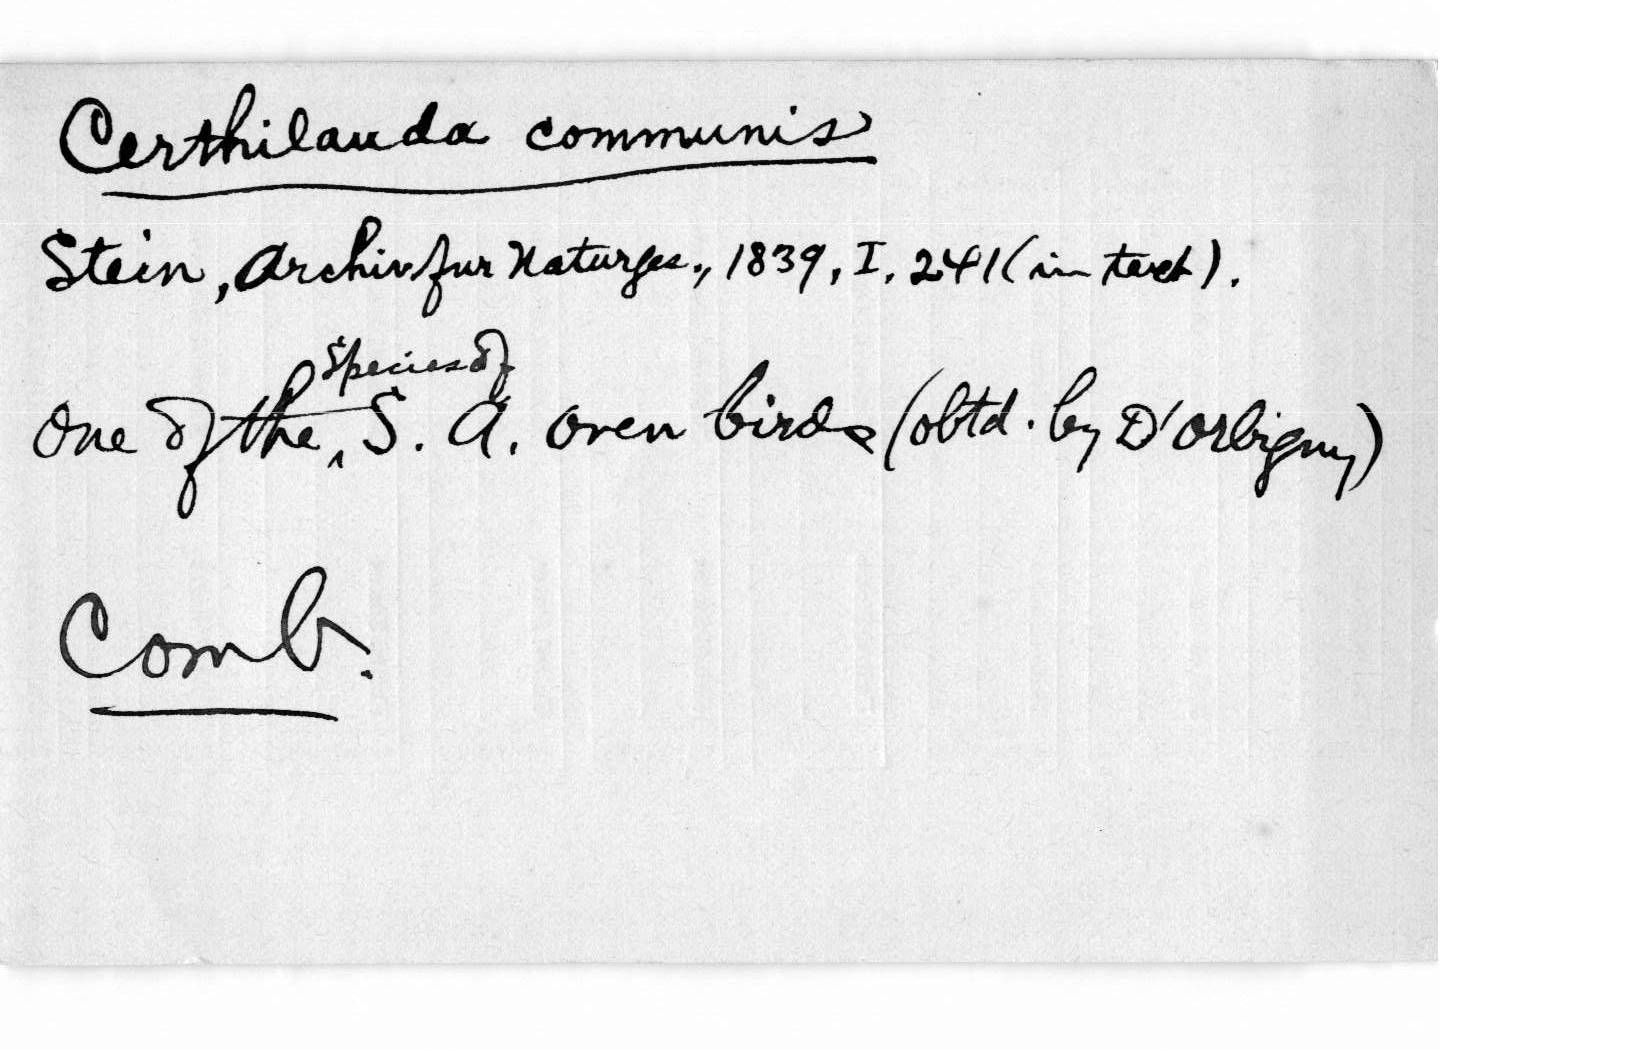 Certhilauda communis
Stein, Archiv fur Naturges., 1839, I, 241 (in text).
One of the species of S. A. oven birds (obtd. by D'Orbigny)
Comb.